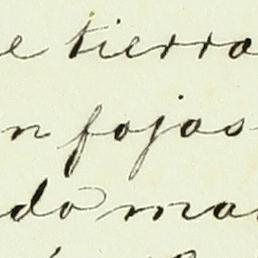 e tierra
n fojas
do ma